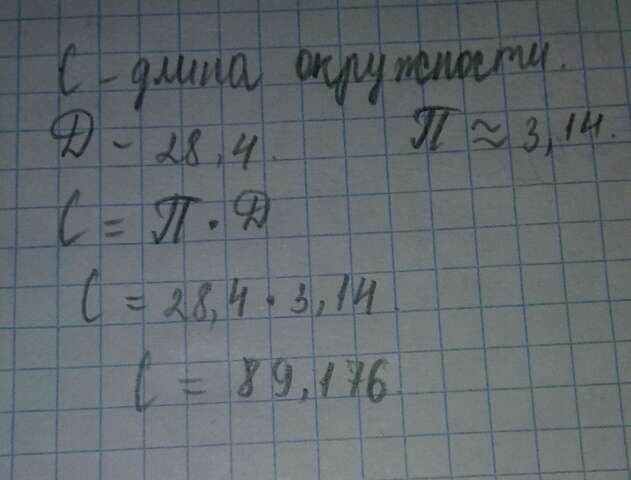 С - длина окружности.
Д - 28,4. П ≈ 3,14.
С = П · Д
С = 28,4 · 3,14.
С = 89,176